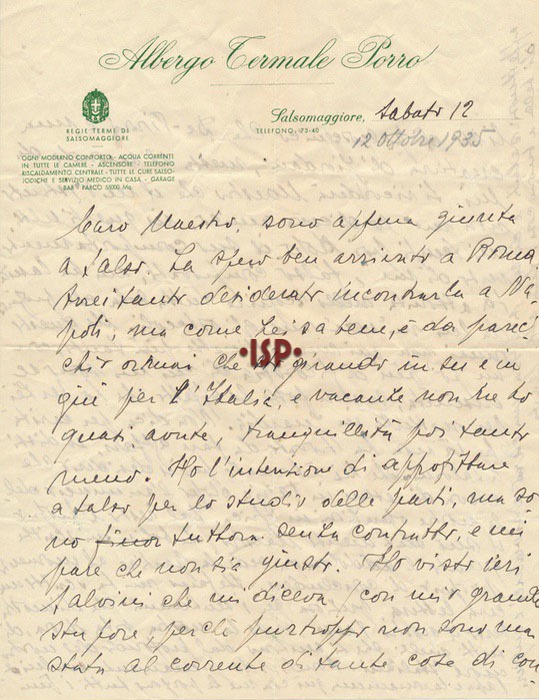 Albergo Termale Porro
REGIE TERME DI
SALSOMAGGIORE
Salsomaggiore, Sabato 12
TELEFONO, 73-40
12 Ottobre 1935
OGNI MODERNO CONFORTO - ACQUA CORRENTE
IN TUTTE LE CAMERE - ASCENSORE - TELEFONO
RISCALDAMENTO CENTRALE - TUTTE LE CURE SALSO-
JODICHE E SERVIZIO MEDICO IN CASA - GARAGE
BAR - PARCO 55000 Mq.
Caro Maestro, sono appena giunta
a Salso. La spero ben arrivato a Roma.
Avrei tanto desiderato incontrarla a Na-
poli, ma come Lei sa bene, è da parec
chio ormai che girando in su e in
giù per l'Italia, e vacanze non ne ho
quasi avute, tranquillità poi tanto
meno. Ho l'intenzione di approfittare
a Salso per lo studio delle parti, ma so-
no finor tuttora senza contratto, e mi
pare che non sia giusto. Ho visto ieri
Salvini che mi diceva (con mio grande
stupore, perchè purtroppo non sono mai
stata al corrente di tante cose di con-
ISP